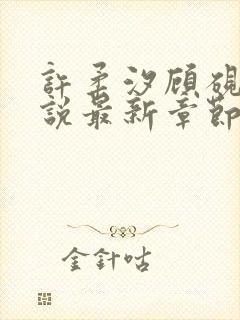 許柔汐顧硯
說最新章節
金針咕